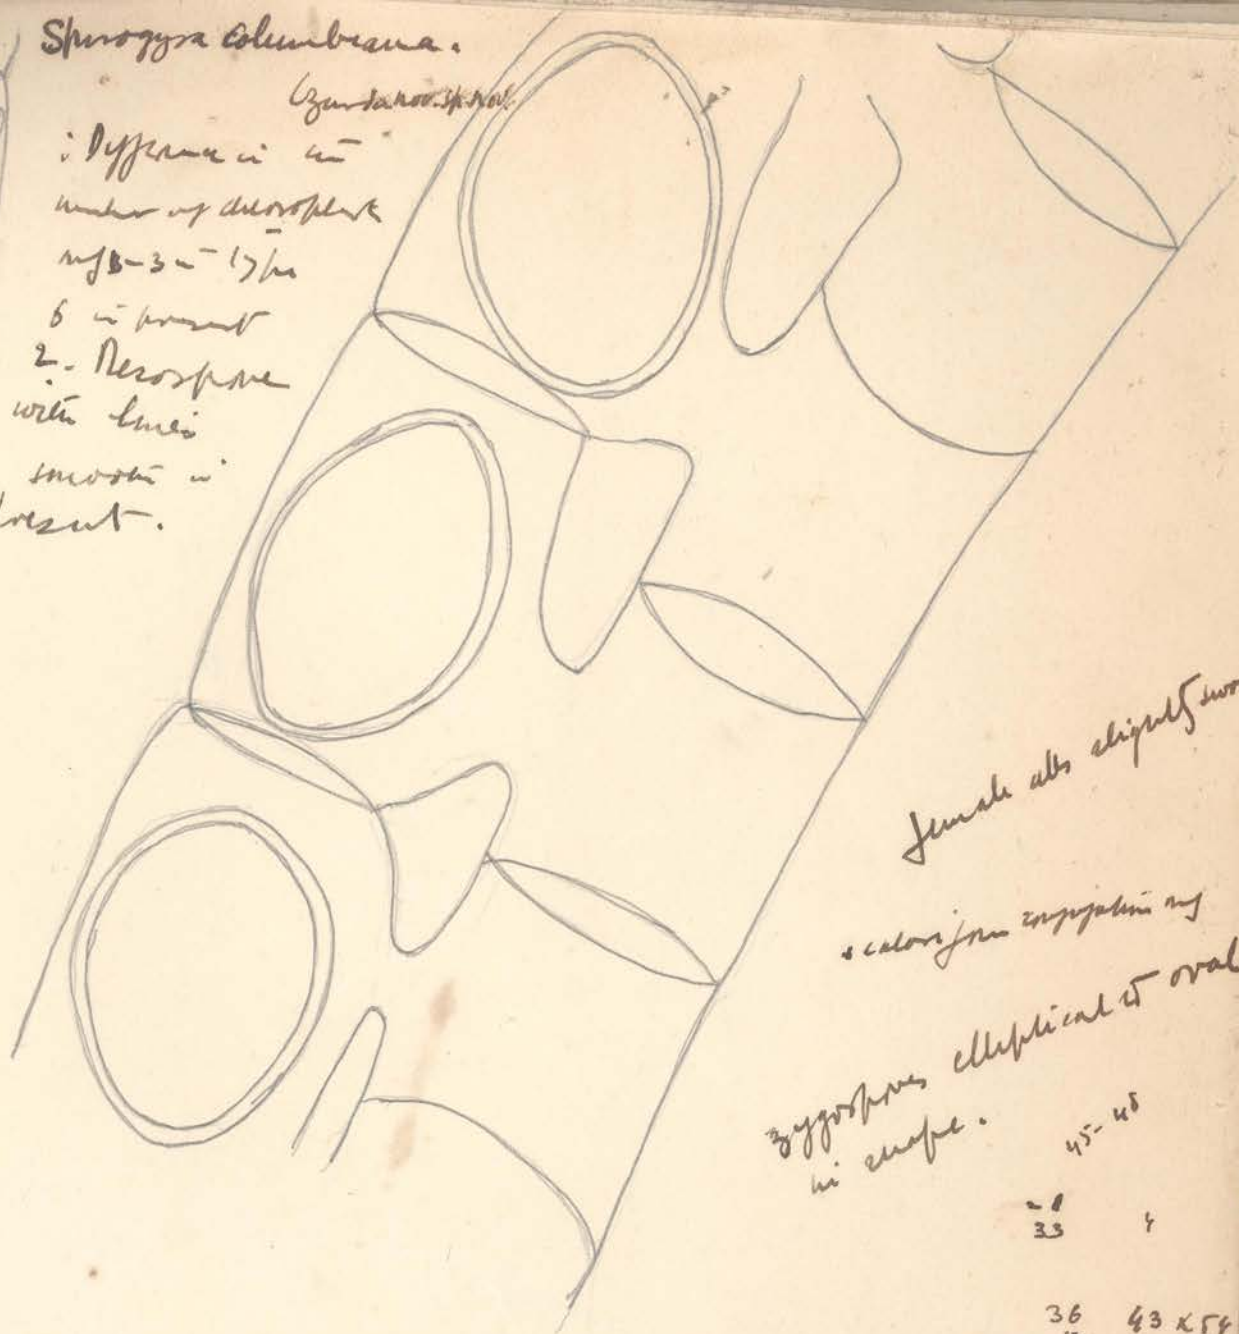 Spirogyra columbiana.
(Czurda nov. sp. nov.
: Difference in
number of chloroplasts
3 in type
6 in present
2. Mesospore
with lines
smooth in
present.
female cells slightly
conjugation
zygospores elliptical to oval
in shape.
45-48
33
36 43 x 54